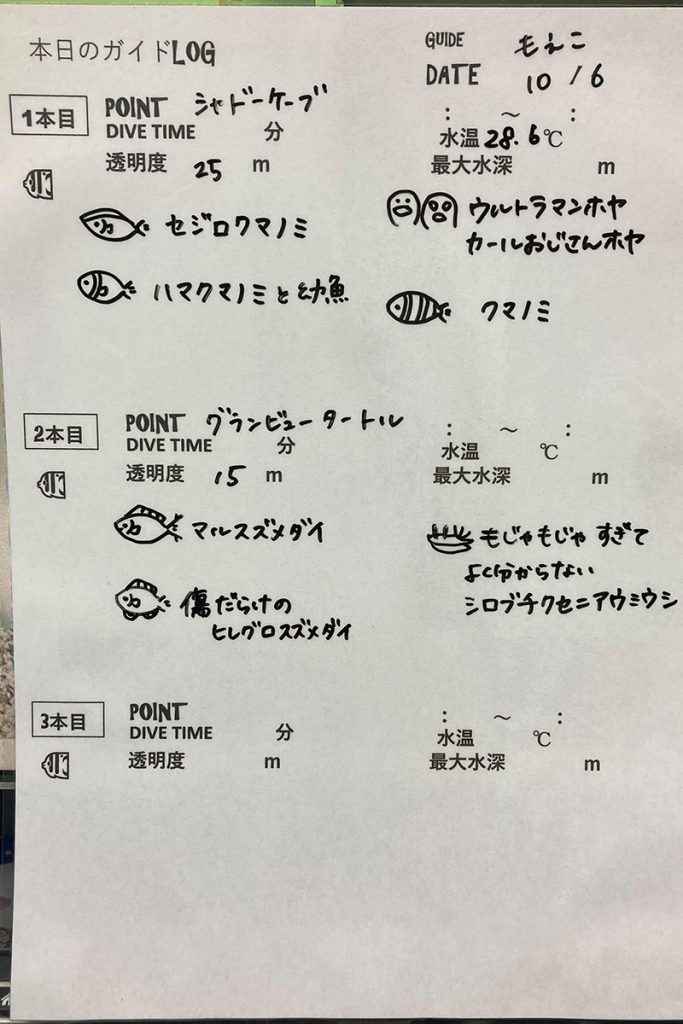 本日のガイドLOG
GUIDE もえこ
DATE 10 / 6
1本目
POINT シャドーケーブ
DIVE TIME 分 : ～ :
水温 28.6℃
透明度 25 m 最大水深 m
セジロクマノミ
ウルトラマンホヤ
カールおじさんホヤ
ハマクマノミと幼魚
クマノミ
2本目
POINT グランビュータートル
DIVE TIME 分 : ～ :
水温 ℃
透明度 15 m 最大水深 m
マルスズメダイ
もじゃもじゃ すぎて
よく分からない
シロブチクセニアウミウシ
傷だらけの
ヒレグロスズメダイ
3本目
POINT
DIVE TIME 分 : ～ :
水温 ℃
透明度 m 最大水深 m